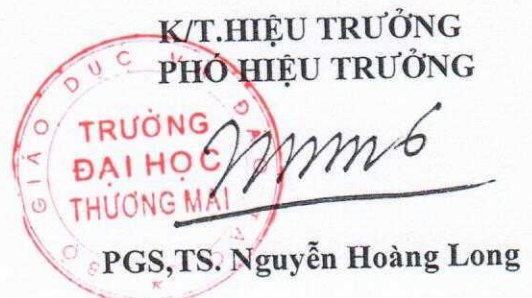 K/T.HIỆU TRƯỞNG
PHÓ HIỆU TRƯỞNG
BỘ GIÁO DỤC VÀ ĐÀO TẠO
TRƯỜNG
ĐẠI HỌC
THƯƠNG MẠI
PGS,TS. Nguyễn Hoàng Long